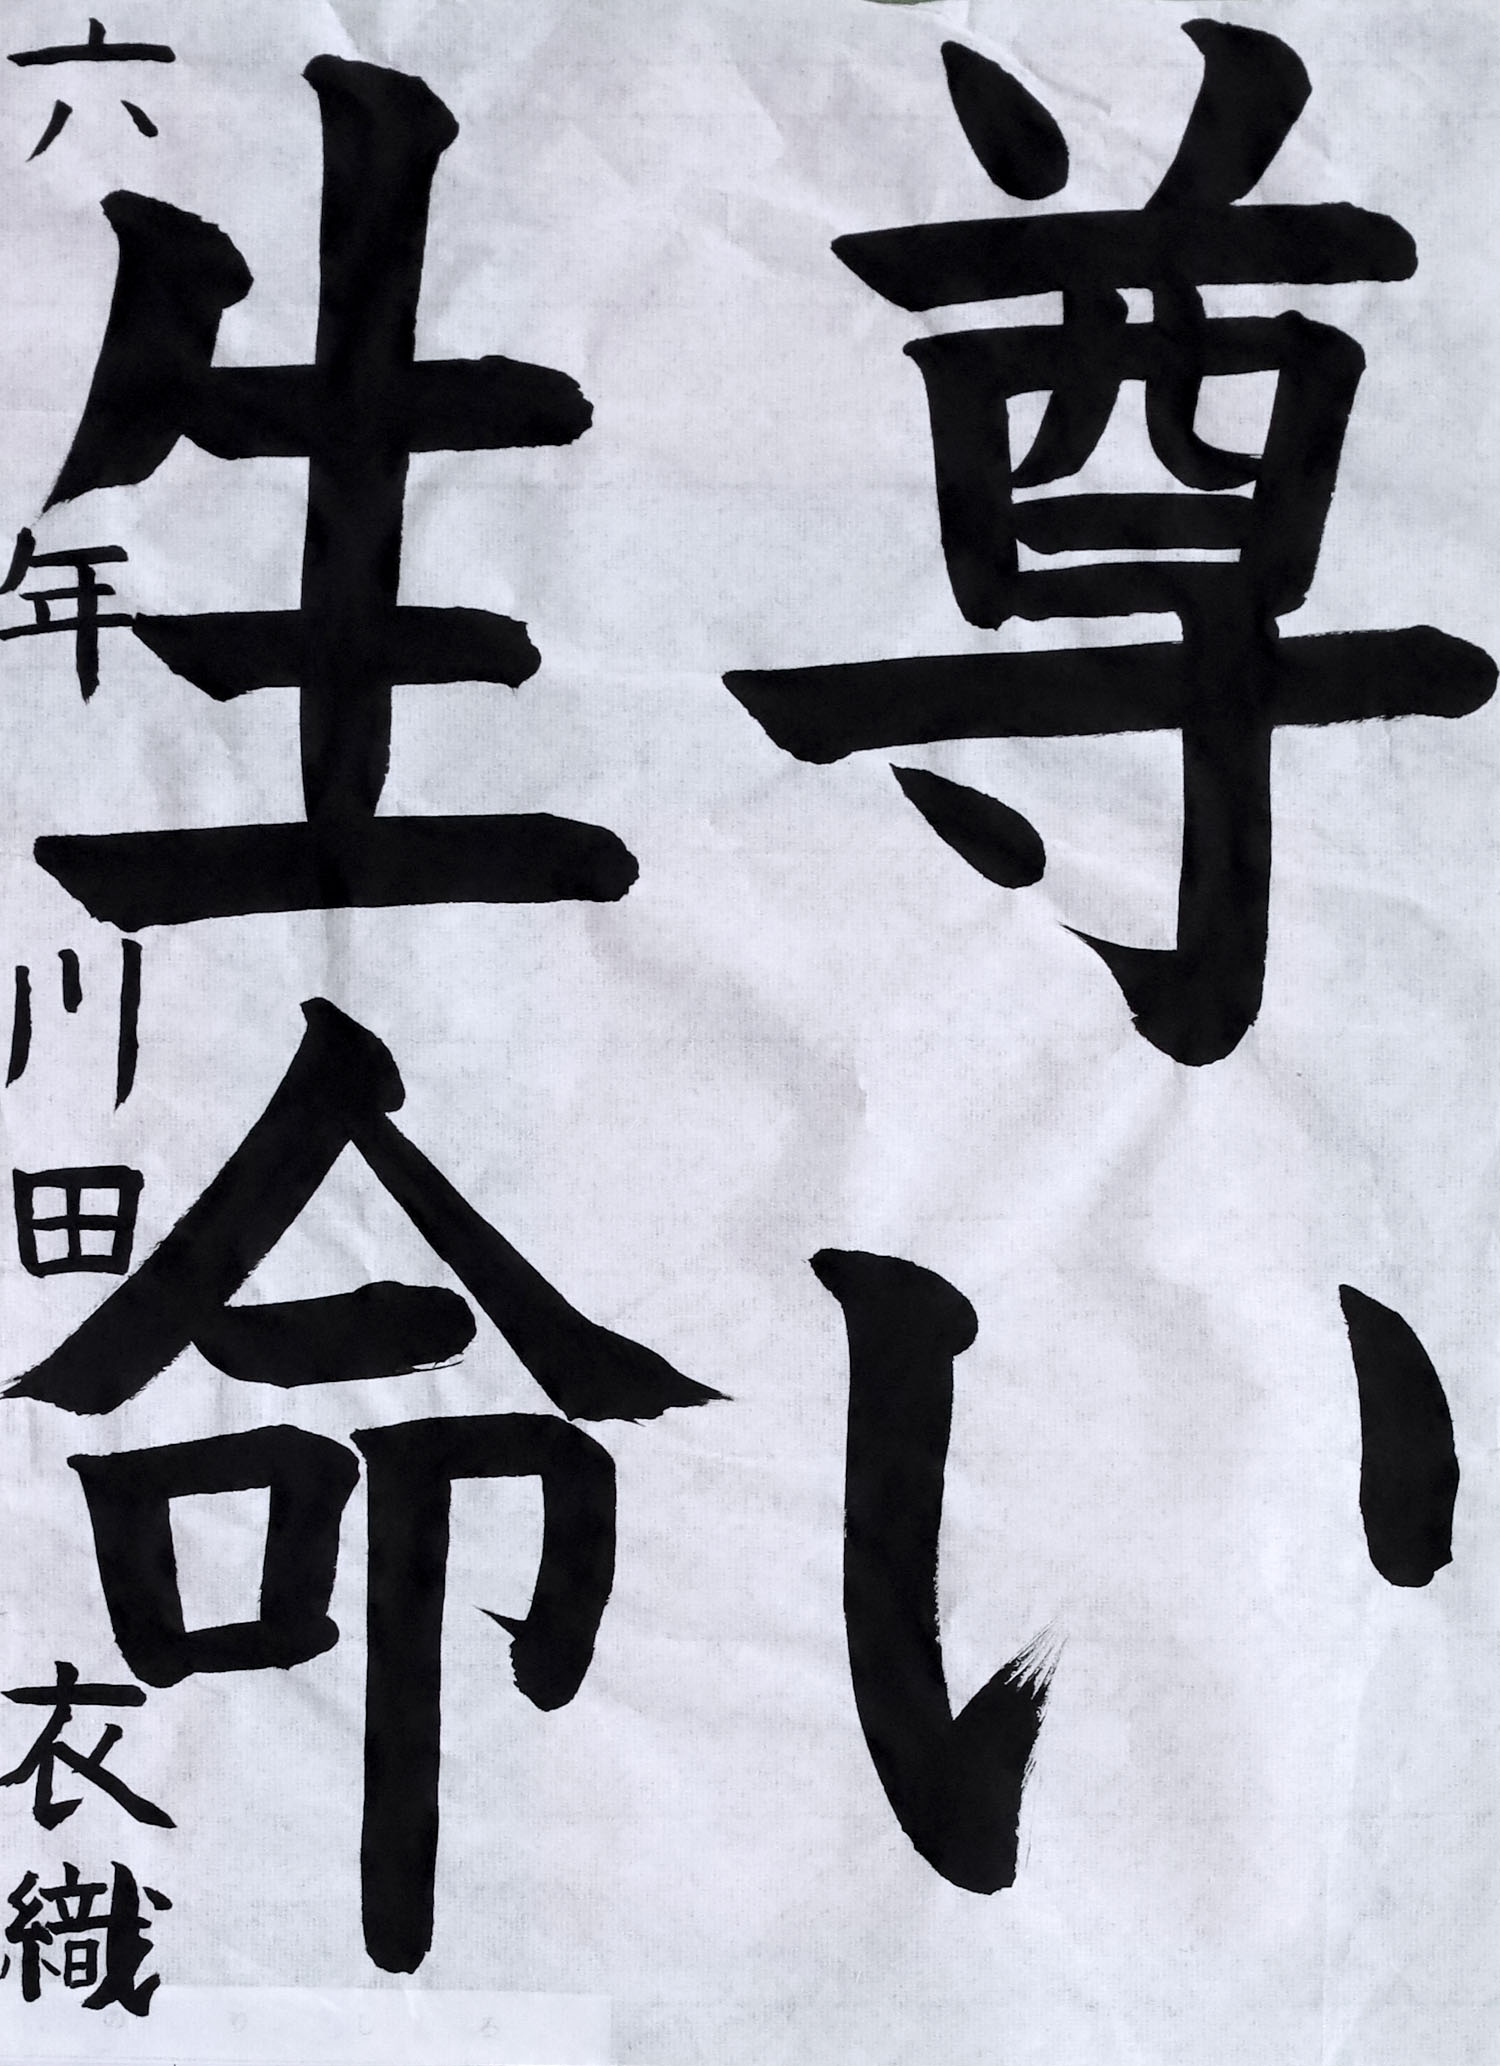 尊い
生命
六年 川田 衣織